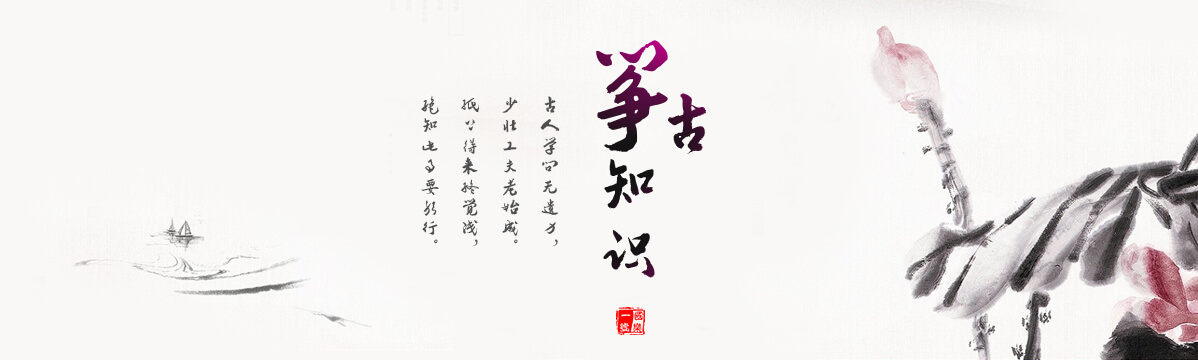 古筝
知识
古人学问无遗力，
少壮工夫老始成。
纸上得来终觉浅，
绝知此事要躬行。